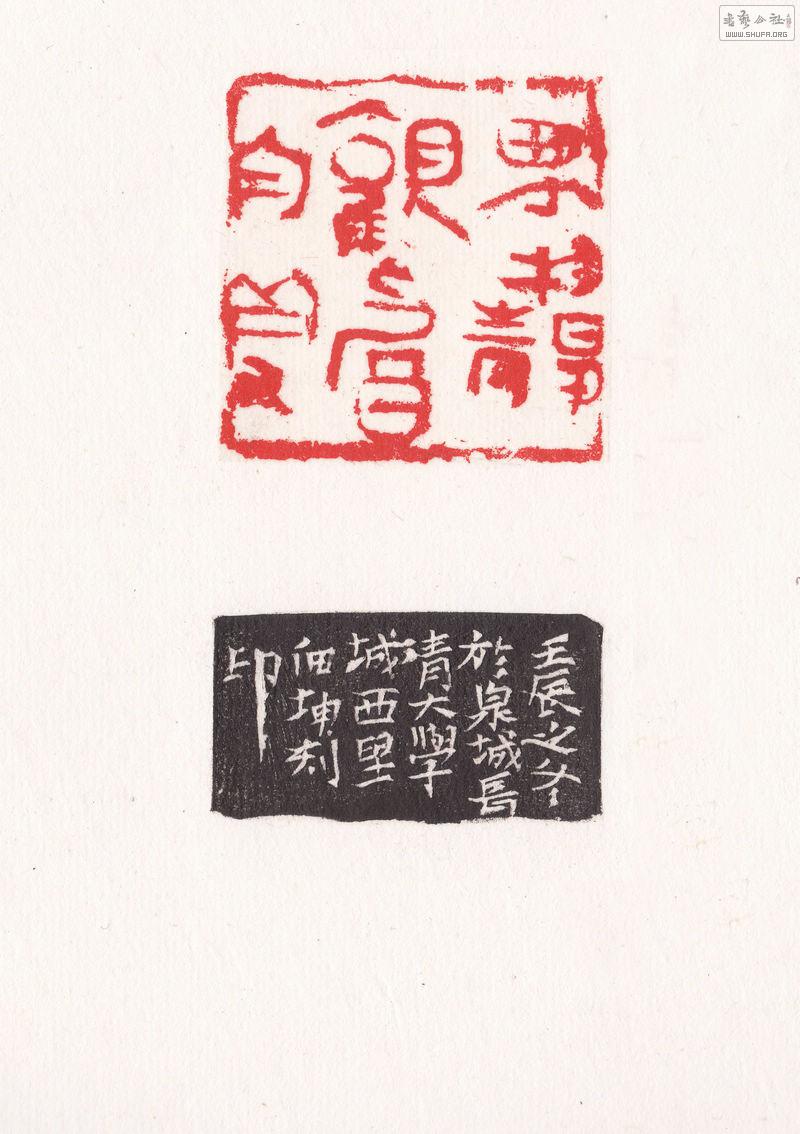 書藝公社
WWW.SHUFA.ORG
萬物靜
觀皆
自得
壬辰之冬
於泉城長
清大學
城西里
坤刻
印